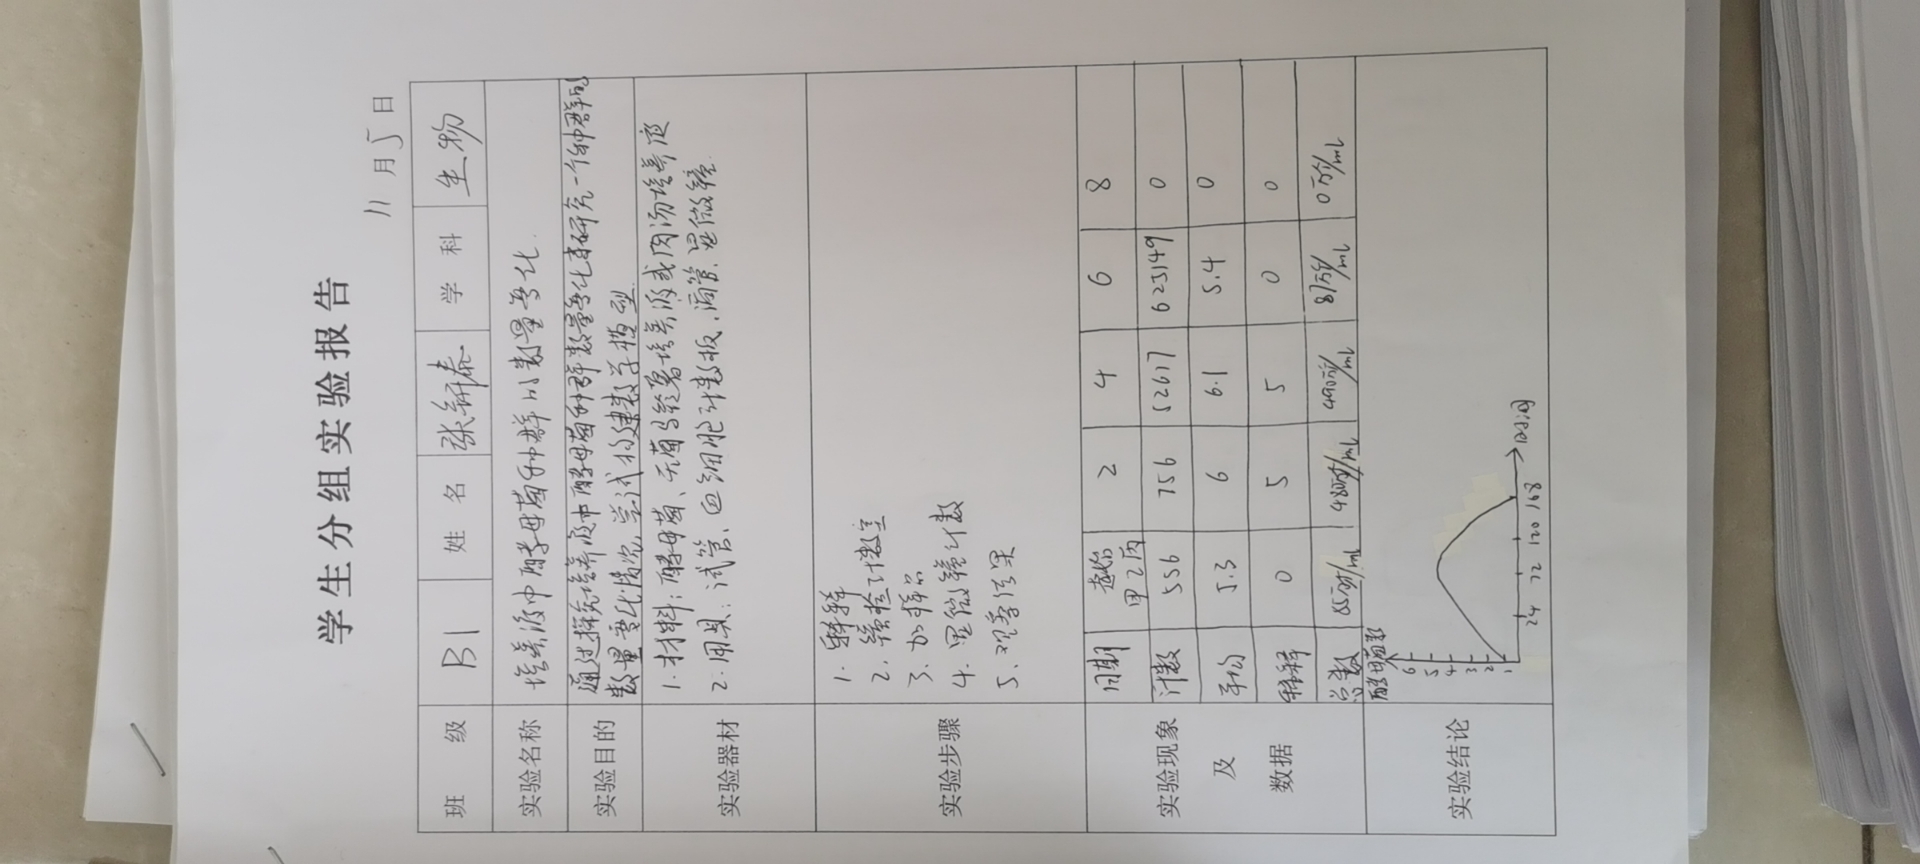 学生分组实验报告
11月5日
班级 B1 姓名 张轩泰 学科 生物
实验名称 培养液中酵母菌种群的数量变化.
实验目的 通过探究培养液中酵母菌种群数量变化来研究一个种群的
数量变化情况,尝试构建数学模型
实验器材 1.材料:酵母菌、无菌马铃薯培养液或肉汤培养液
2.用具:试管、血细胞计数板、滴管、显微镜.
实验步骤 1.稀释
2.镜检计数室
3.加样品
4.显微镜计数
5.观察结果
实验现象及数据
日期 起始 甲乙丙 2 4 6 8
计数 556 756 52617 623149 0
平均 5.3 6 6.1 5.4 0
稀释 0 5 5 0 0
总数 55万/mL 480万/mL 490万/mL 81万/mL 0万/mL
实验结论
酵母菌数
6
5
4
3
2
1
24 72 120 148 时间